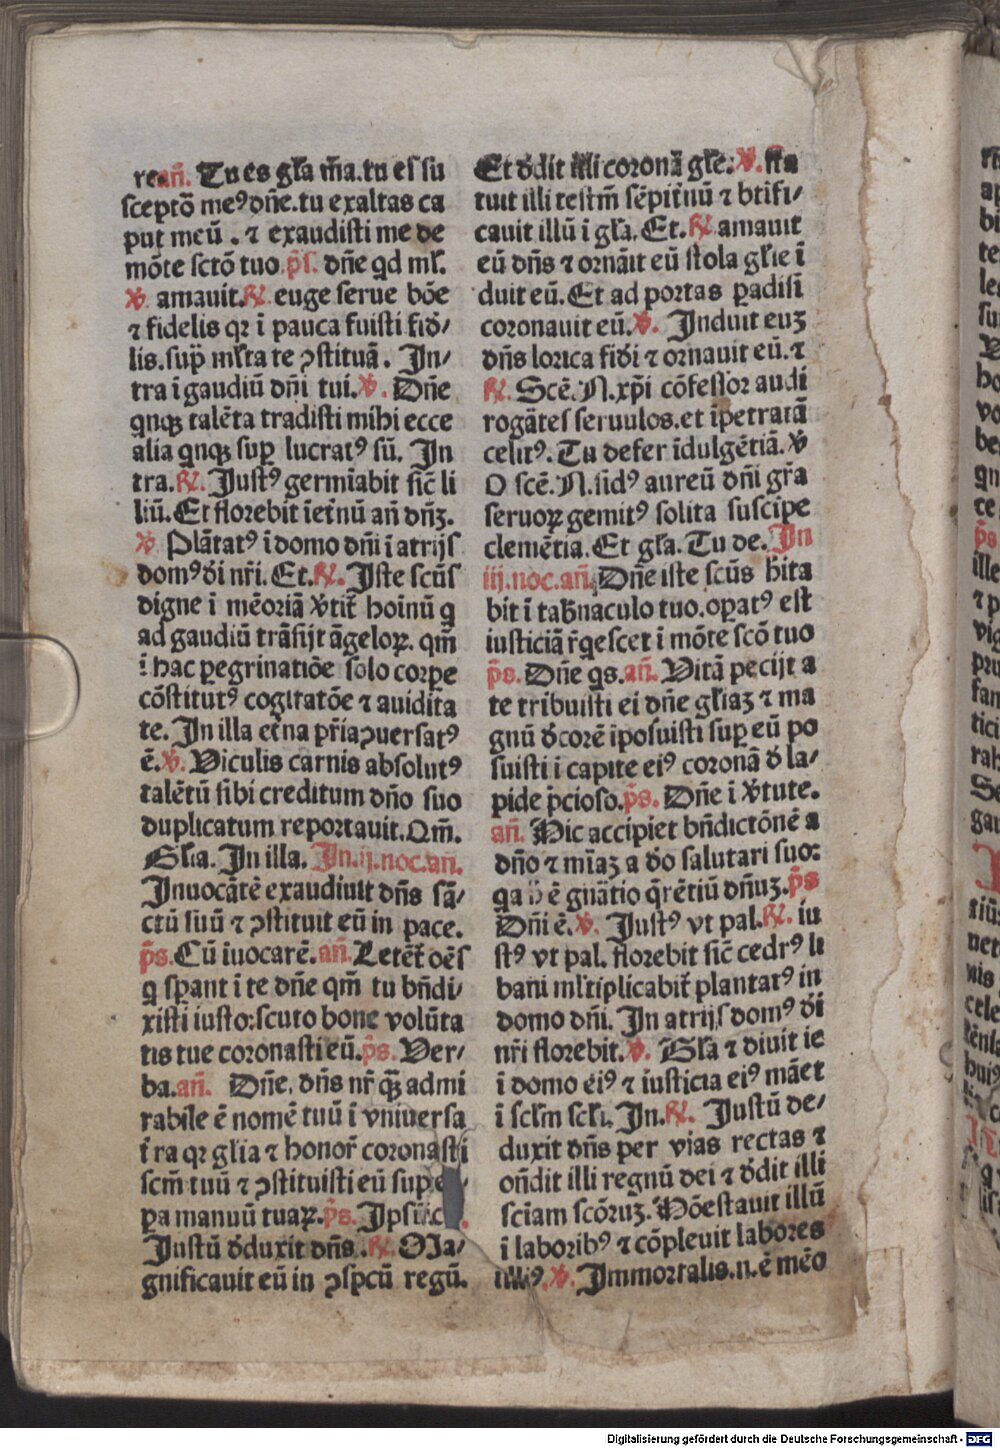 re añ. Tu es gła m̃a. tu es su
sceptõ meꝰ dñe. tu exaltas ca
put meũ . ⁊ exaudisti me de
mõte sctõ tuo. p̃s. dñe qd ml̃.
℣ amauit. ℟. euge serue bõe
⁊ fidelis qꝛ ĩ pauca fuisti fid̃/
lis. sup̃ ml̃ta te ꝯstituã . In/
tra ĩ gaudiũ dñi tui. ℣. Dñe
qnqꝫ talẽta tradisti mihi ecce
alia qnqꝫ suꝑ lucratꝰ sũ. In
tra. ℟. Justꝰ germĩabit sic̃ li
liũ. Et florebit ĩet̃nũ añ dñꝫ.
℣ Plãtatꝰ ĩ domo dñi ĩ atrijs
domꝰ d̃i nr̃i. Et. ℟. Iste scũs
digne ĩ mẽoriã v̾tit̃ hoinũ q
ad gaudiũ trãsijt ãgeloꝝ. qm̃
ĩ hac ꝑegrinatiõe solo corꝑe
cõstitutꝰ cogitatõe ⁊ auidita
te. In illa et̃na pr̃ia ꝯuersatꝰ
ẽ. ℣. Viculis carnis absolutꝰ
talẽtũ sibi creditum dño suo
duplicatum reportauit. Qm̃.
Gl̃ia. In illa. In .ij. noc. añ.
Inuocãtẽ exaudiuit dñs sã/
ctũ suũ ⁊ ꝯstituit eũ in pace.
p̃s. Cũ iuocarẽ. añ. Letẽt̃ oẽs
q sꝑant i te dñe qm̃ tu bñdi/
xisti iusto: scuto bone volũta
tis tue coronasti eũ. p̃s. Ver/
ba. añ. Dñe. dñs nr̃ qꝫ̃ admi
rabile ẽ nomẽ tuũ ĩ vniuersa
t̃ra qꝛ gl̃ia ⁊ honor̃ coronasti
scm̃ tuũ ⁊ ꝯstituisti eũ supe
ꝑa manuũ tuaꝝ. p̃s. Ipsũ
Justũ d̃duxit dñs. ℟. Ma/
gnificauit eũ in ꝯspcũ regũ.
Et d̃dit illi coronã gl̃e. ℣. sta
tuit illi testm̃ sẽpit̃nũ ⁊ btifi/
cauit illũ ĩ gła. Et. ℟ amauit
eũ dñs ⁊ ornãit eũ stola gl̃ie ĩ
duit eũ. Et ad portas ꝑadisi
coronauit eũ. ℣. Induit euꝫ
dñs lorica fid̃i ⁊ ornauit eũ. ⁊
℟. Scẽ. N. xp̃i cõfessor audi
rogãtes seruulos. et ĩpetratã
celitꝰ. Tu defer ĩdulgẽtiã. ℣
O scẽ. N. sidꝰ aureũ dñi gr̃a
seruoꝝ gemitꝰ solita suscipe
clemẽtia. Et gła. Tu de. In
iij. noc. añ. Dñe iste scũs h̃ita
bit ĩ tab̃naculo tuo. oꝑatꝰ est
iusticiã r̃qescet ĩ mõte scõ tuo
p̃s. Dñe qs. añ. Vitã pecijt a
te tribuisti ei dñe gl̃iaꝫ ⁊ ma
gnũ d̃corẽ iposuisti suꝑ eũ po
suisti i capite eiꝰ coronã d̃ la/
pide p̃cioso. p̃s. Dñe ĩ v̾tute.
añ. Hic accipiet bñdictõnẽ a
dño ⁊ mĩaꝫ a d̃o salutari suo:
qa h̃ ẽ gnãtio q̃rẽtiũ dñuꝫ. p̃s
Dñi ẽ. ℣. Justꝰ vt pal. ℟. iu
stꝰ vt pal. florebit sic̃ cedrꝰ li
bani ml̃tiplicabit̃ plantatꝰ in
domo dñi. In atrijs domꝰ d̃i
nr̃i florebit. ℣. Gła ⁊ diuit ie
ĩ domo eiꝰ ⁊ iusticia eiꝰ mãet
ĩ scl̃m scl̃i. In. ℟. Justũ de/
duxit dñs per vias rectas ⁊
oñdit illi regnũ dei ⁊ d̃dit illi
sciam scõruꝫ. Hõestauit illũ
ĩ laboribꝰ ⁊ cõpleuit labores
illiꝰ. ℣. Immortalis. n. ẽ mẽo
Digitalisierung gefördert durch die Deutsche Forschungsgemeinschaft - DFG